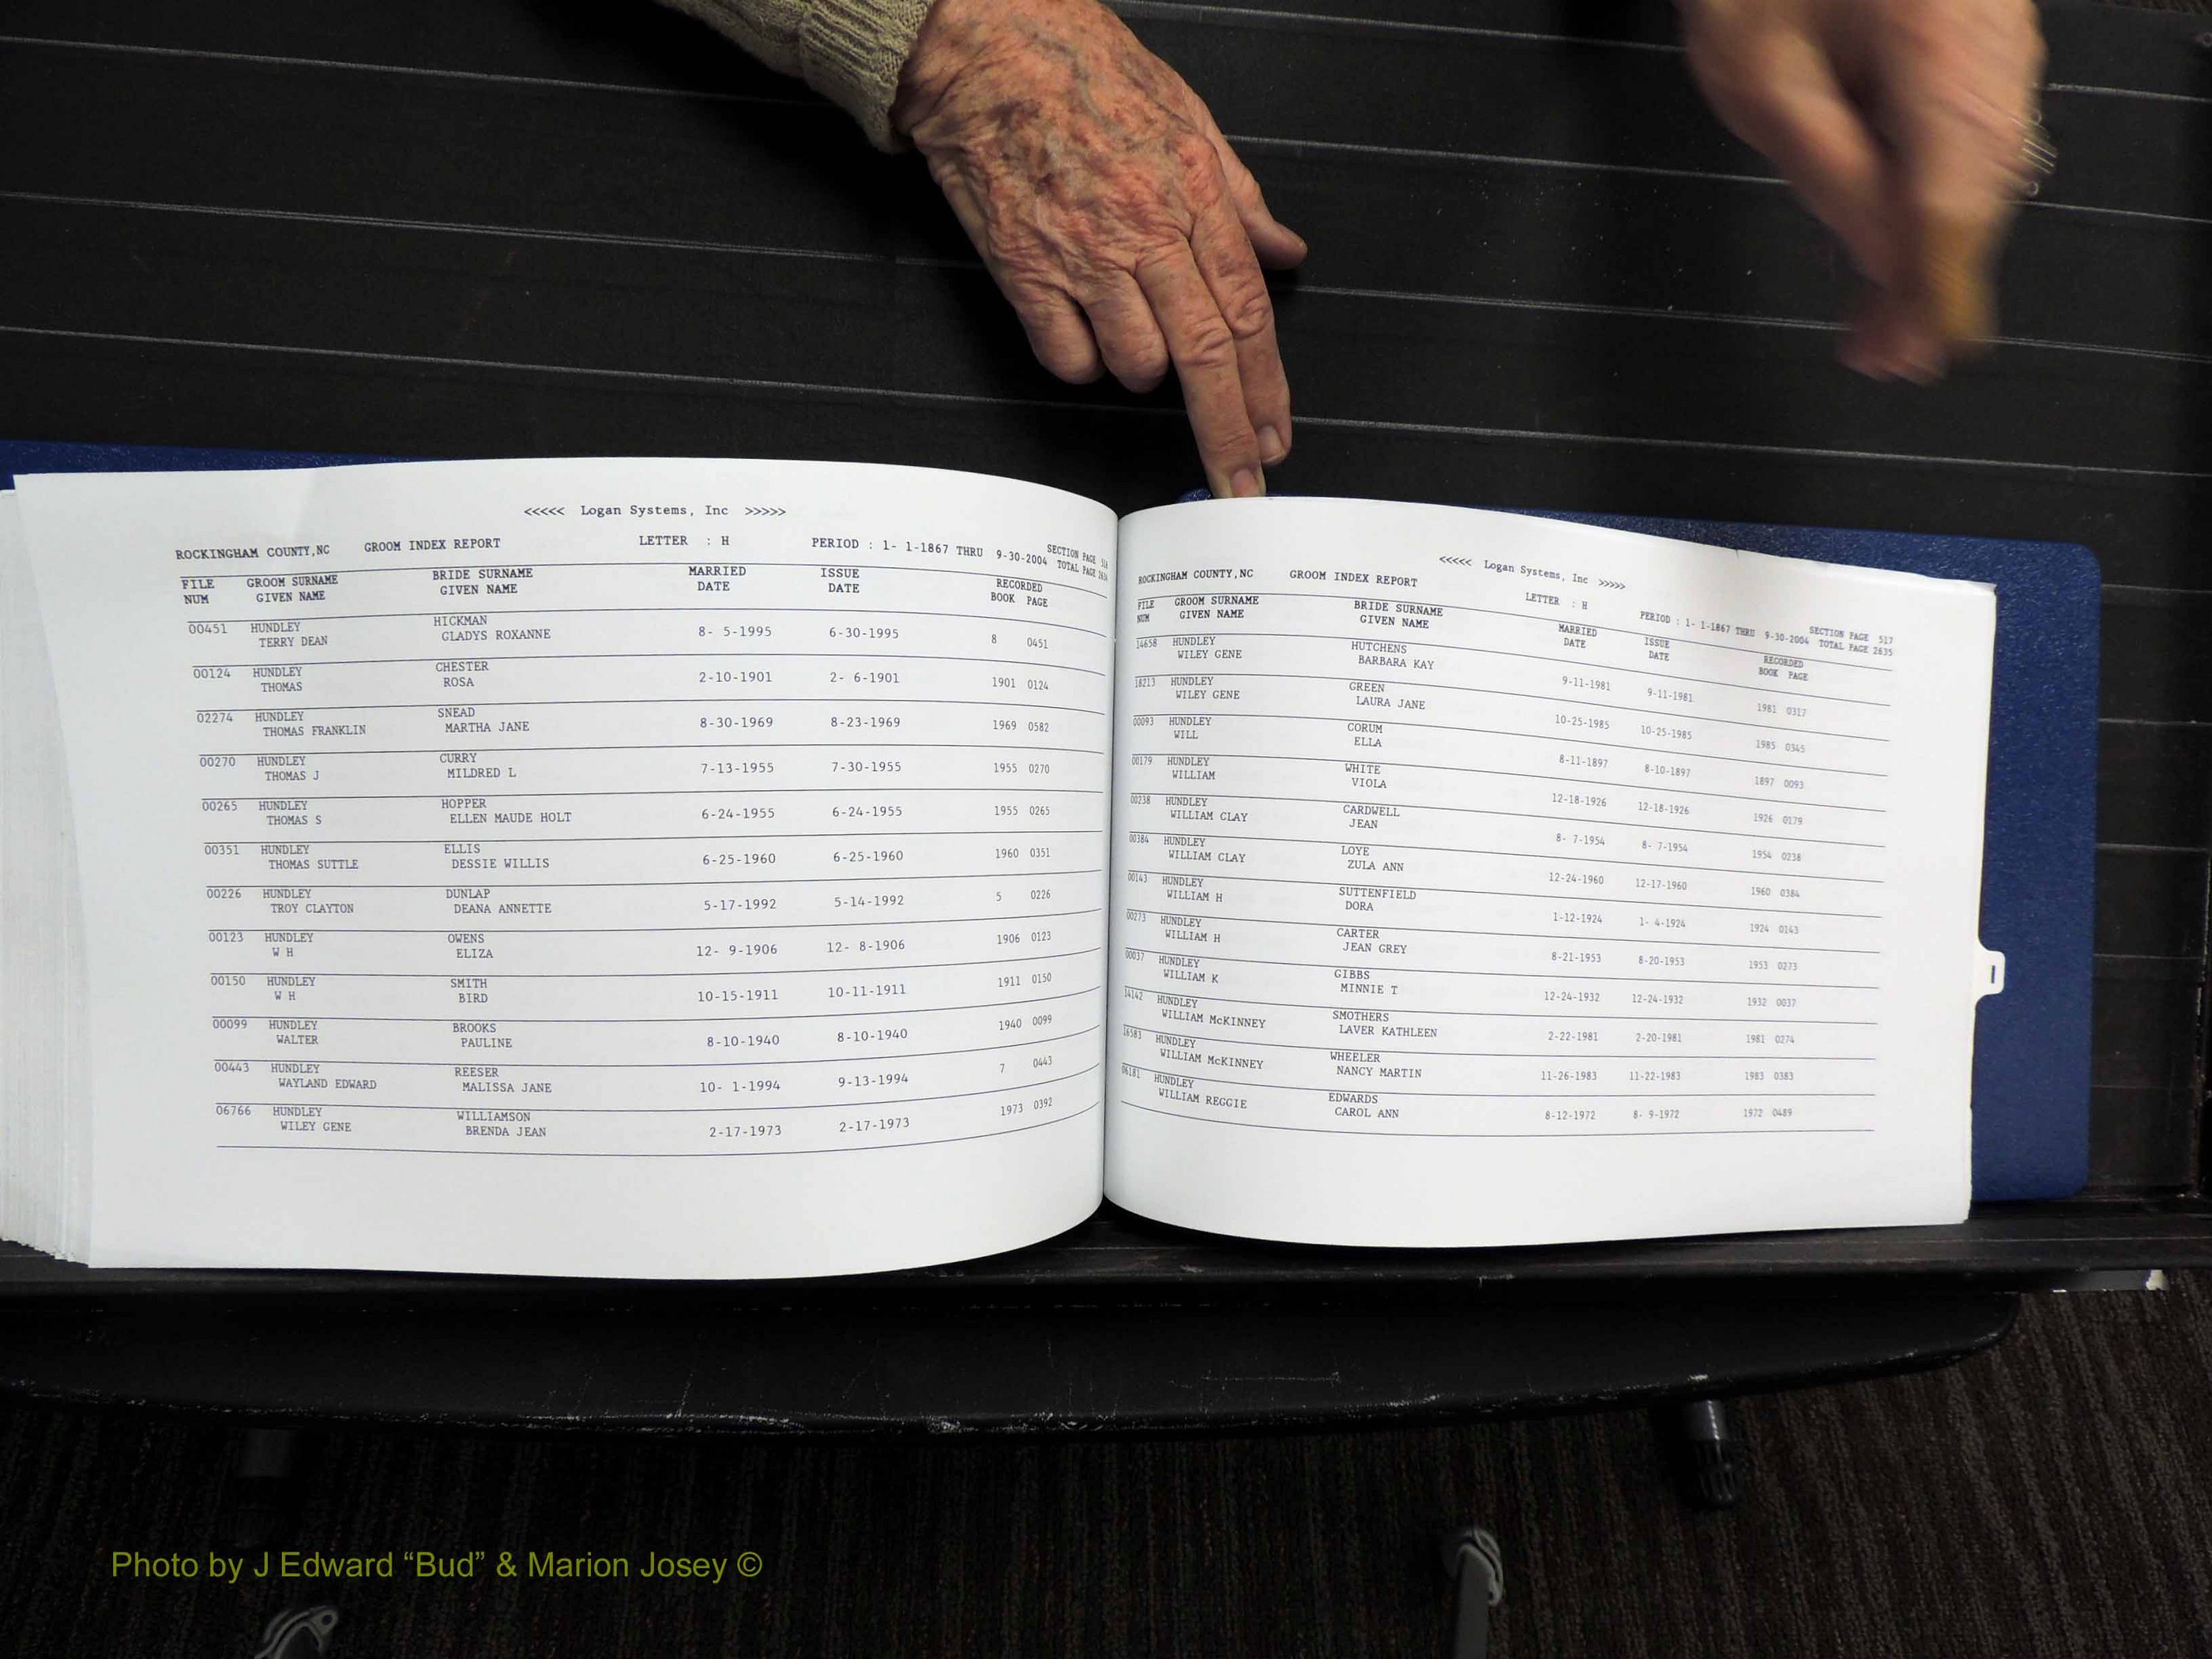 <<<<< Logan Systems, Inc >>>>>
ROCKINGHAM COUNTY,NC GROOM INDEX REPORT LETTER : H PERIOD : 1- 1-1867 THRU 9-30-2004 SECTION PAGE
TOTAL PAGE
FILE GROOM SURNAME BRIDE SURNAME MARRIED ISSUE RECORDED
NUM GIVEN NAME GIVEN NAME DATE DATE BOOK PAGE
00451 HUNDLEY HICKMAN 8- 5-1995 6-30-1995 8 0451
TERRY DEAN GLADYS ROXANNE
00124 HUNDLEY CHESTER 2-10-1901 2- 6-1901 1901 0124
THOMAS ROSA
02274 HUNDLEY SNEAD 8-30-1969 8-23-1969 1969 0582
THOMAS FRANKLIN MARTHA JANE
00270 HUNDLEY CURRY 7-13-1955 7-30-1955 1955 0270
THOMAS J MILDRED L
00265 HUNDLEY HOPPER 6-24-1955 6-24-1955 1955 0265
THOMAS S ELLEN MAUDE HOLT
00351 HUNDLEY ELLIS 6-25-1960 6-25-1960 1960 0351
THOMAS SUTTLE DESSIE WILLIS
00226 HUNDLEY DUNLAP 5-17-1992 5-14-1992 5 0226
TROY CLAYTON DEANA ANNETTE
00123 HUNDLEY OWENS 12- 9-1906 12- 8-1906 1906 0123
W H ELIZA
00150 HUNDLEY SMITH 10-15-1911 10-11-1911 1911 0150
W H BIRD
00099 HUNDLEY BROOKS 8-10-1940 8-10-1940 1940 0099
WALTER PAULINE
00443 HUNDLEY REESER 10- 1-1994 9-13-1994 7 0443
WAYLAND EDWARD MALISSA JANE
06766 HUNDLEY WILLIAMSON 2-17-1973 2-17-1973 1973 0392
WILEY GENE BRENDA JEAN
<<<<< Logan Systems, Inc >>>>>
ROCKINGHAM COUNTY,NC GROOM INDEX REPORT LETTER : H PERIOD : 1- 1-1867 THRU 9-30-2004 SECTION PAGE 517
TOTAL PAGE 2635
FILE GROOM SURNAME BRIDE SURNAME MARRIED ISSUE RECORDED
NUM GIVEN NAME GIVEN NAME DATE DATE BOOK PAGE
14658 HUNDLEY HUTCHENS 9-11-1981 9-11-1981 1981 0317
WILEY GENE BARBARA KAY
18213 HUNDLEY GREEN 10-25-1985 10-25-1985 1985 0345
WILEY GENE LAURA JANE
00093 HUNDLEY CORUM 8-11-1897 8-10-1897 1897 0093
WILL ELLA
00179 HUNDLEY WHITE 12-18-1926 12-18-1926 1926 0179
WILLIAM VIOLA
00238 HUNDLEY CARDWELL 8- 7-1954 8- 7-1954 1954 0238
WILLIAM CLAY JEAN
00384 HUNDLEY LOYE 12-24-1960 12-17-1960 1960 0384
WILLIAM CLAY ZULA ANN
00143 HUNDLEY SUTTENFIELD 1-12-1924 1- 4-1924 1924 0143
WILLIAM H DORA
00273 HUNDLEY CARTER 8-21-1953 8-20-1953 1953 0273
WILLIAM H JEAN GREY
00037 HUNDLEY GIBBS 12-24-1932 12-24-1932 1932 0037
WILLIAM K MINNIE T
14142 HUNDLEY SMOTHERS 2-22-1981 2-20-1981 1981 0274
WILLIAM McKINNEY LAVER KATHLEEN
16583 HUNDLEY WHEELER 11-26-1983 11-22-1983 1983 0383
WILLIAM McKINNEY NANCY MARTIN
06181 HUNDLEY EDWARDS 8-12-1972 8- 9-1972 1972 0489
WILLIAM REGGIE CAROL ANN
I
Photo by J Edward “Bud” & Marion Josey ©